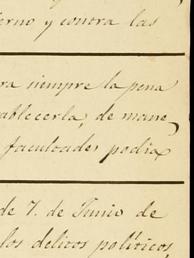 erno y contra las
ra siempre la pena
ablecerla, de mane
facultades podia
de 7. de Junio de
los delitos politicos,